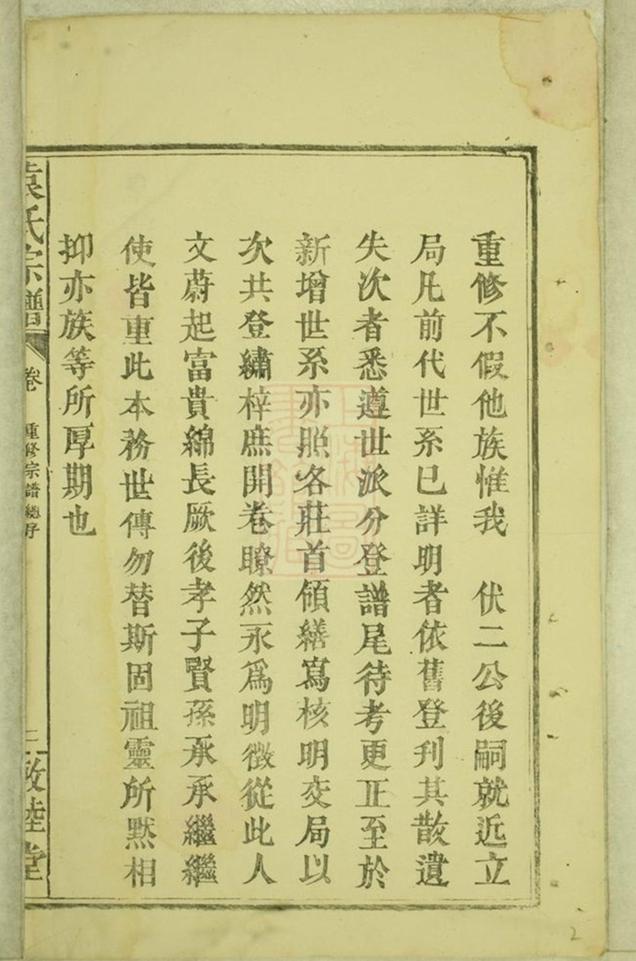 重修不假他族惟我　伏二公後嗣就近立
局凡前代世系已詳明者依舊登刊其散遺
失次者悉遵世派分登譜尾待考更正至於
新增世系亦照各莊首領繕寫核明交局以
次共登繡梓庶開卷瞭然永爲明徵從此人
文蔚起富貴綿長厥後孝子賢孫承承繼繼
使皆重此本務世傳勿替斯固祖靈所黙相
抑亦族等所厚期也
袁氏宗譜　卷　重修宗譜總序　二　敦睦堂
2